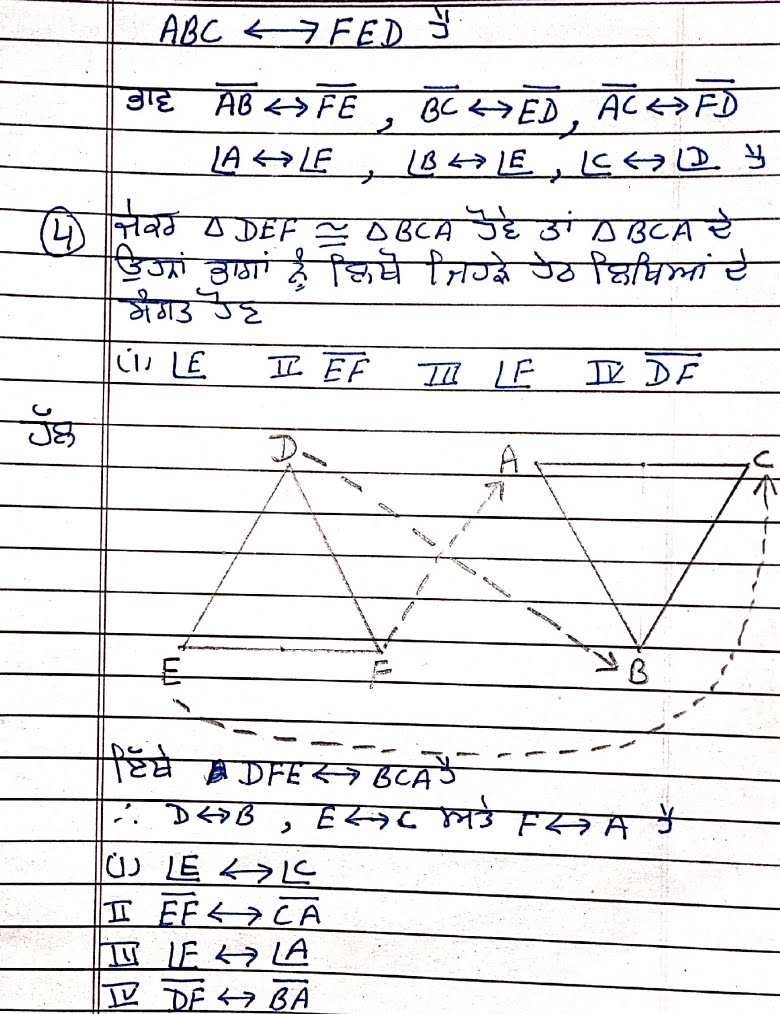 ABC ↔ FED ਹੈ
ਭਾਵ AB ↔ FE , BC ↔ ED , AC ↔ FD
∠A ↔ ∠F , ∠B ↔ ∠E , ∠C ↔ ∠D ਹੈ
4 ਜੇਕਰ △DEF ≅ △BCA ਹੋਵੇ ਤਾਂ △BCA ਦੇ
ਉਹਨਾਂ ਭਾਗਾਂ ਨੂੰ ਲਿਖੋ ਜਿਹੜੇ ਹੇਠ ਲਿਖਿਆਂ ਦੇ
ਸੰਗਤ ਹੋਣ
(i) ∠E II EF III ∠F IV DF
ਹੱਲ
D A C
E F B
ਇੱਥੇ DFE ↔ BCA ਹੈ
∴ D ↔ B , E ↔ C ਅਤੇ F ↔ A ਹੈ
(i) ∠E ↔ ∠C
II EF ↔ CA
III ∠F ↔ ∠A
IV DF ↔ BA